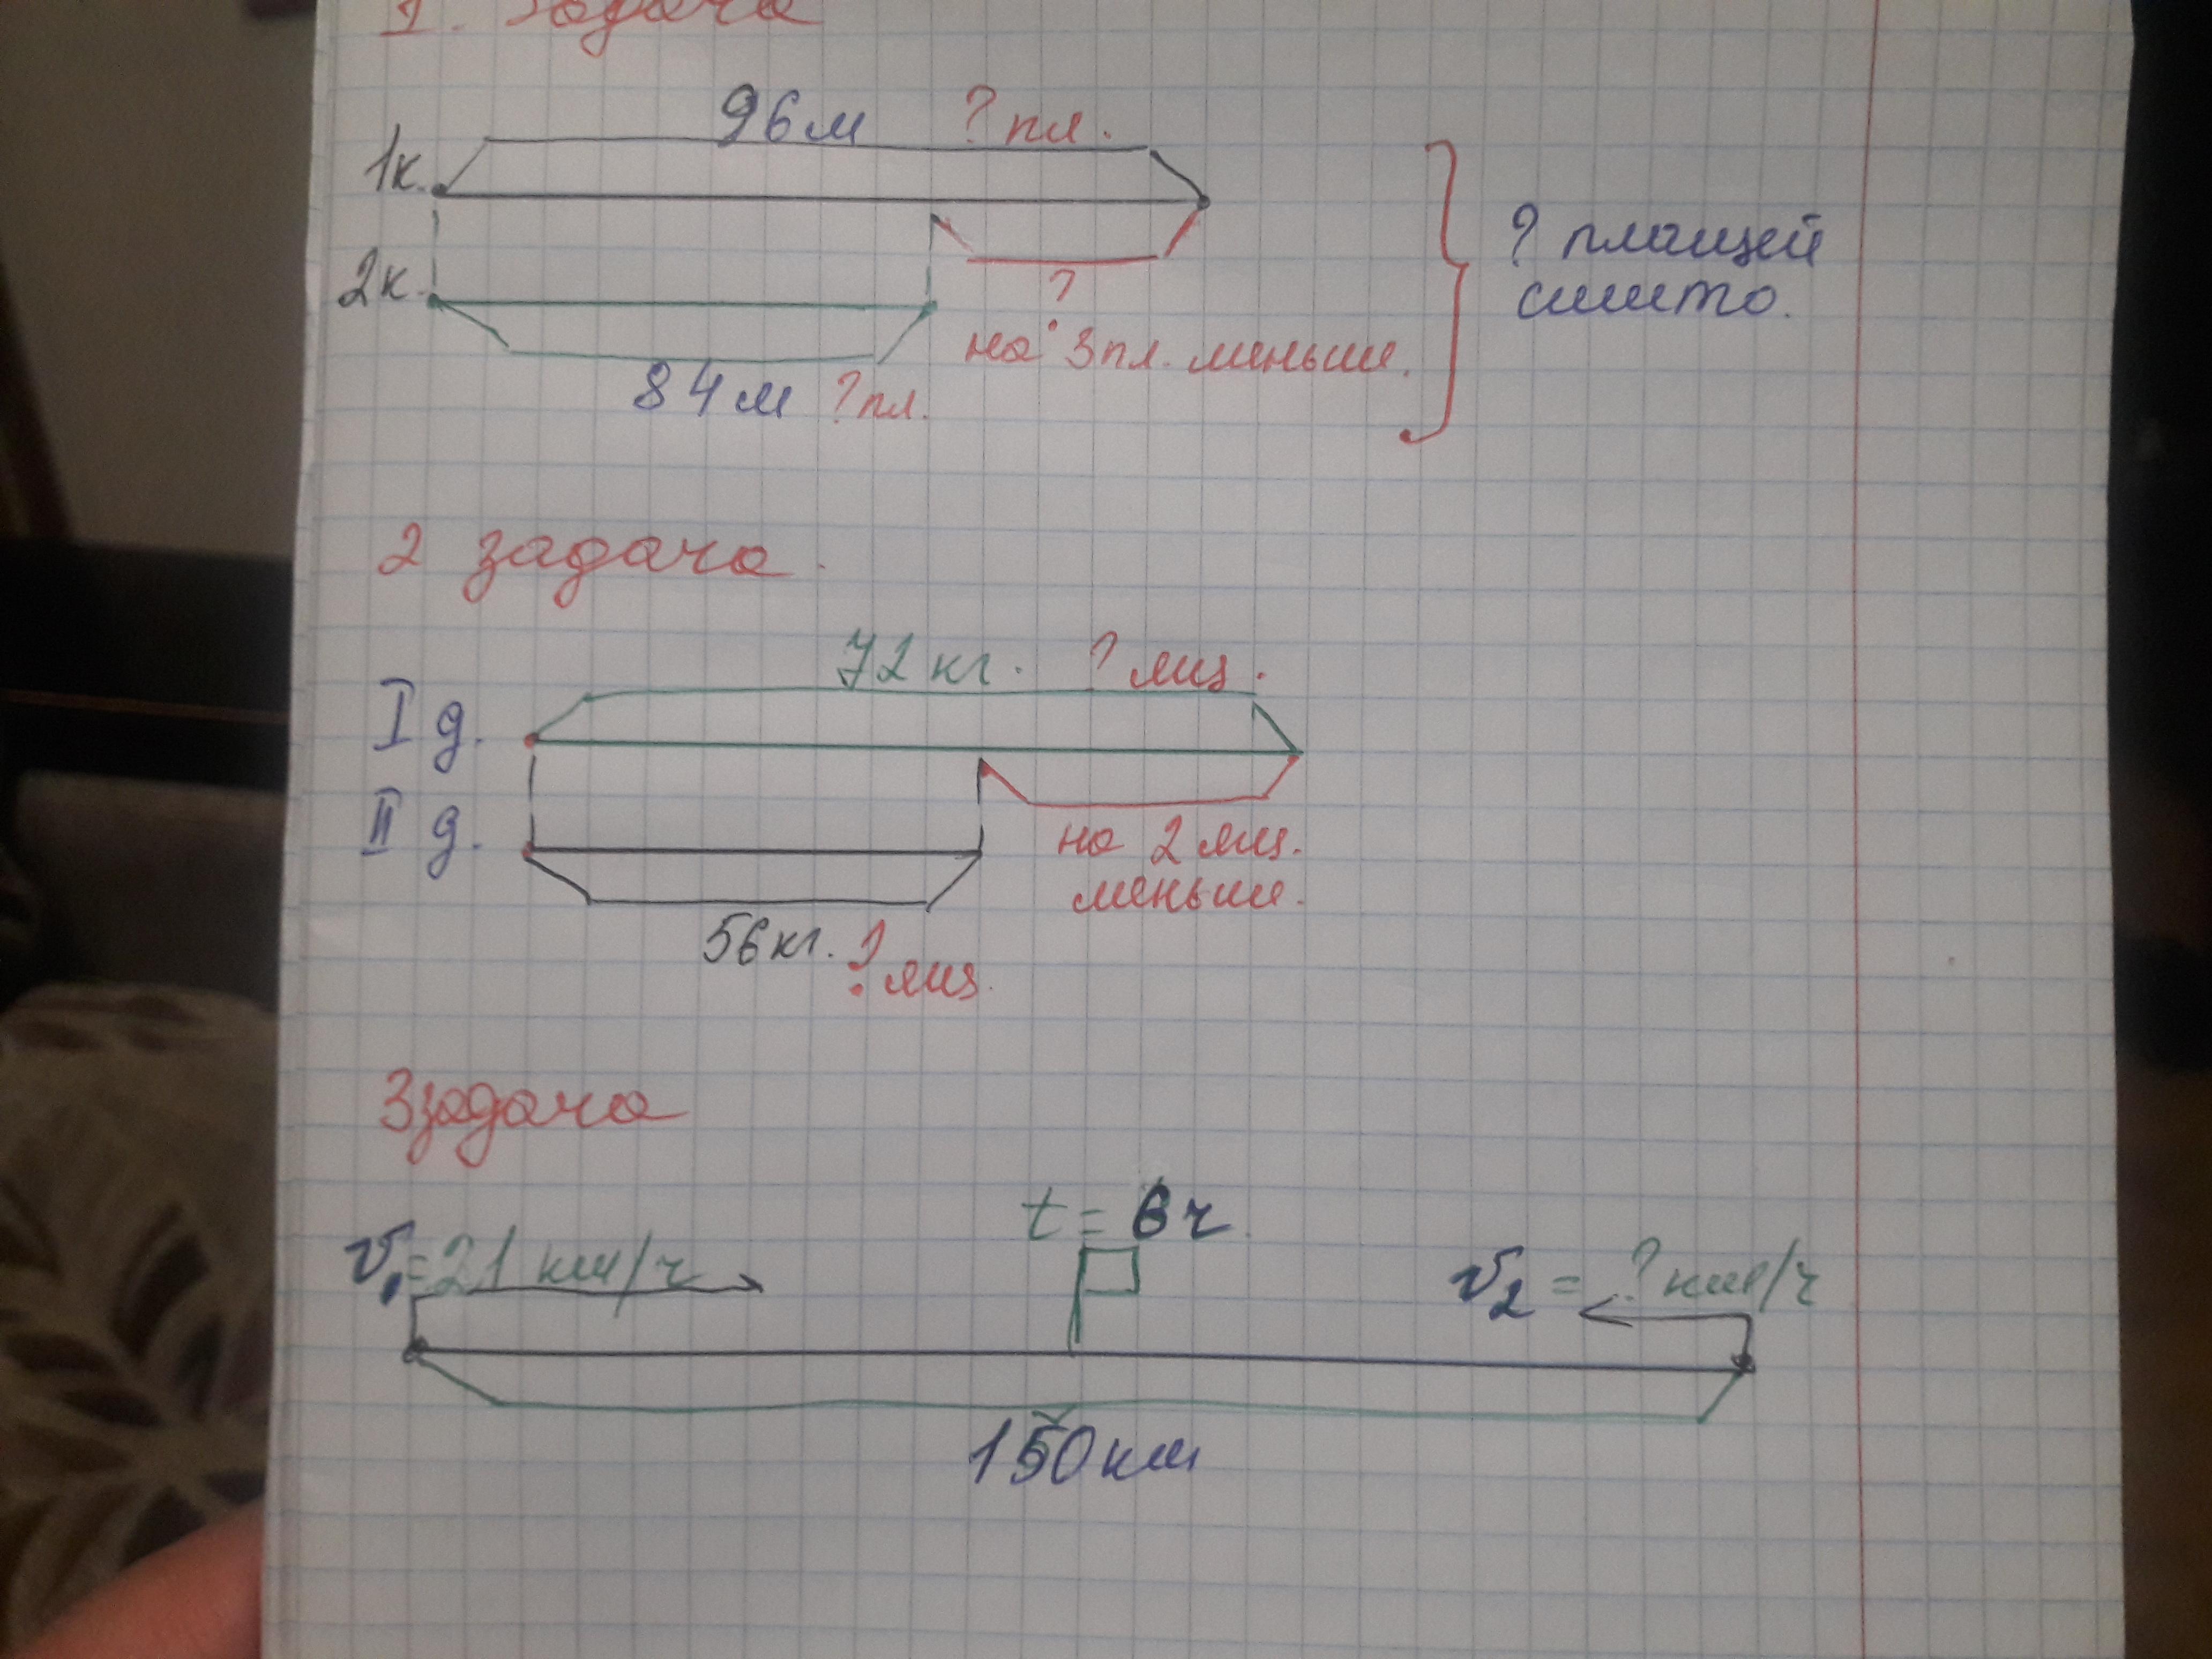 1. Задача
96м ? пл.
1к.
2к.
?
на 3 пл. меньше.
84м ? пл.
? плащей
сшито.
2 задача.
72 кг. ? ящ.
I д.
II д.
на 2 ящ.
меньше.
56 кг. ?
ящ.
3 задача
t = 6 ч
v₁ = 21 км/ч
v₂ = ? км/ч
150 км